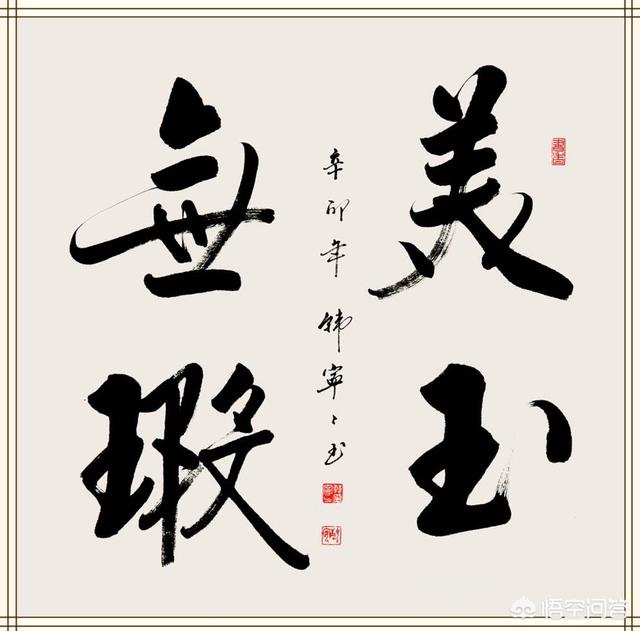 美玉
無瑕
辛卯年韩寧〻书
悟空问答